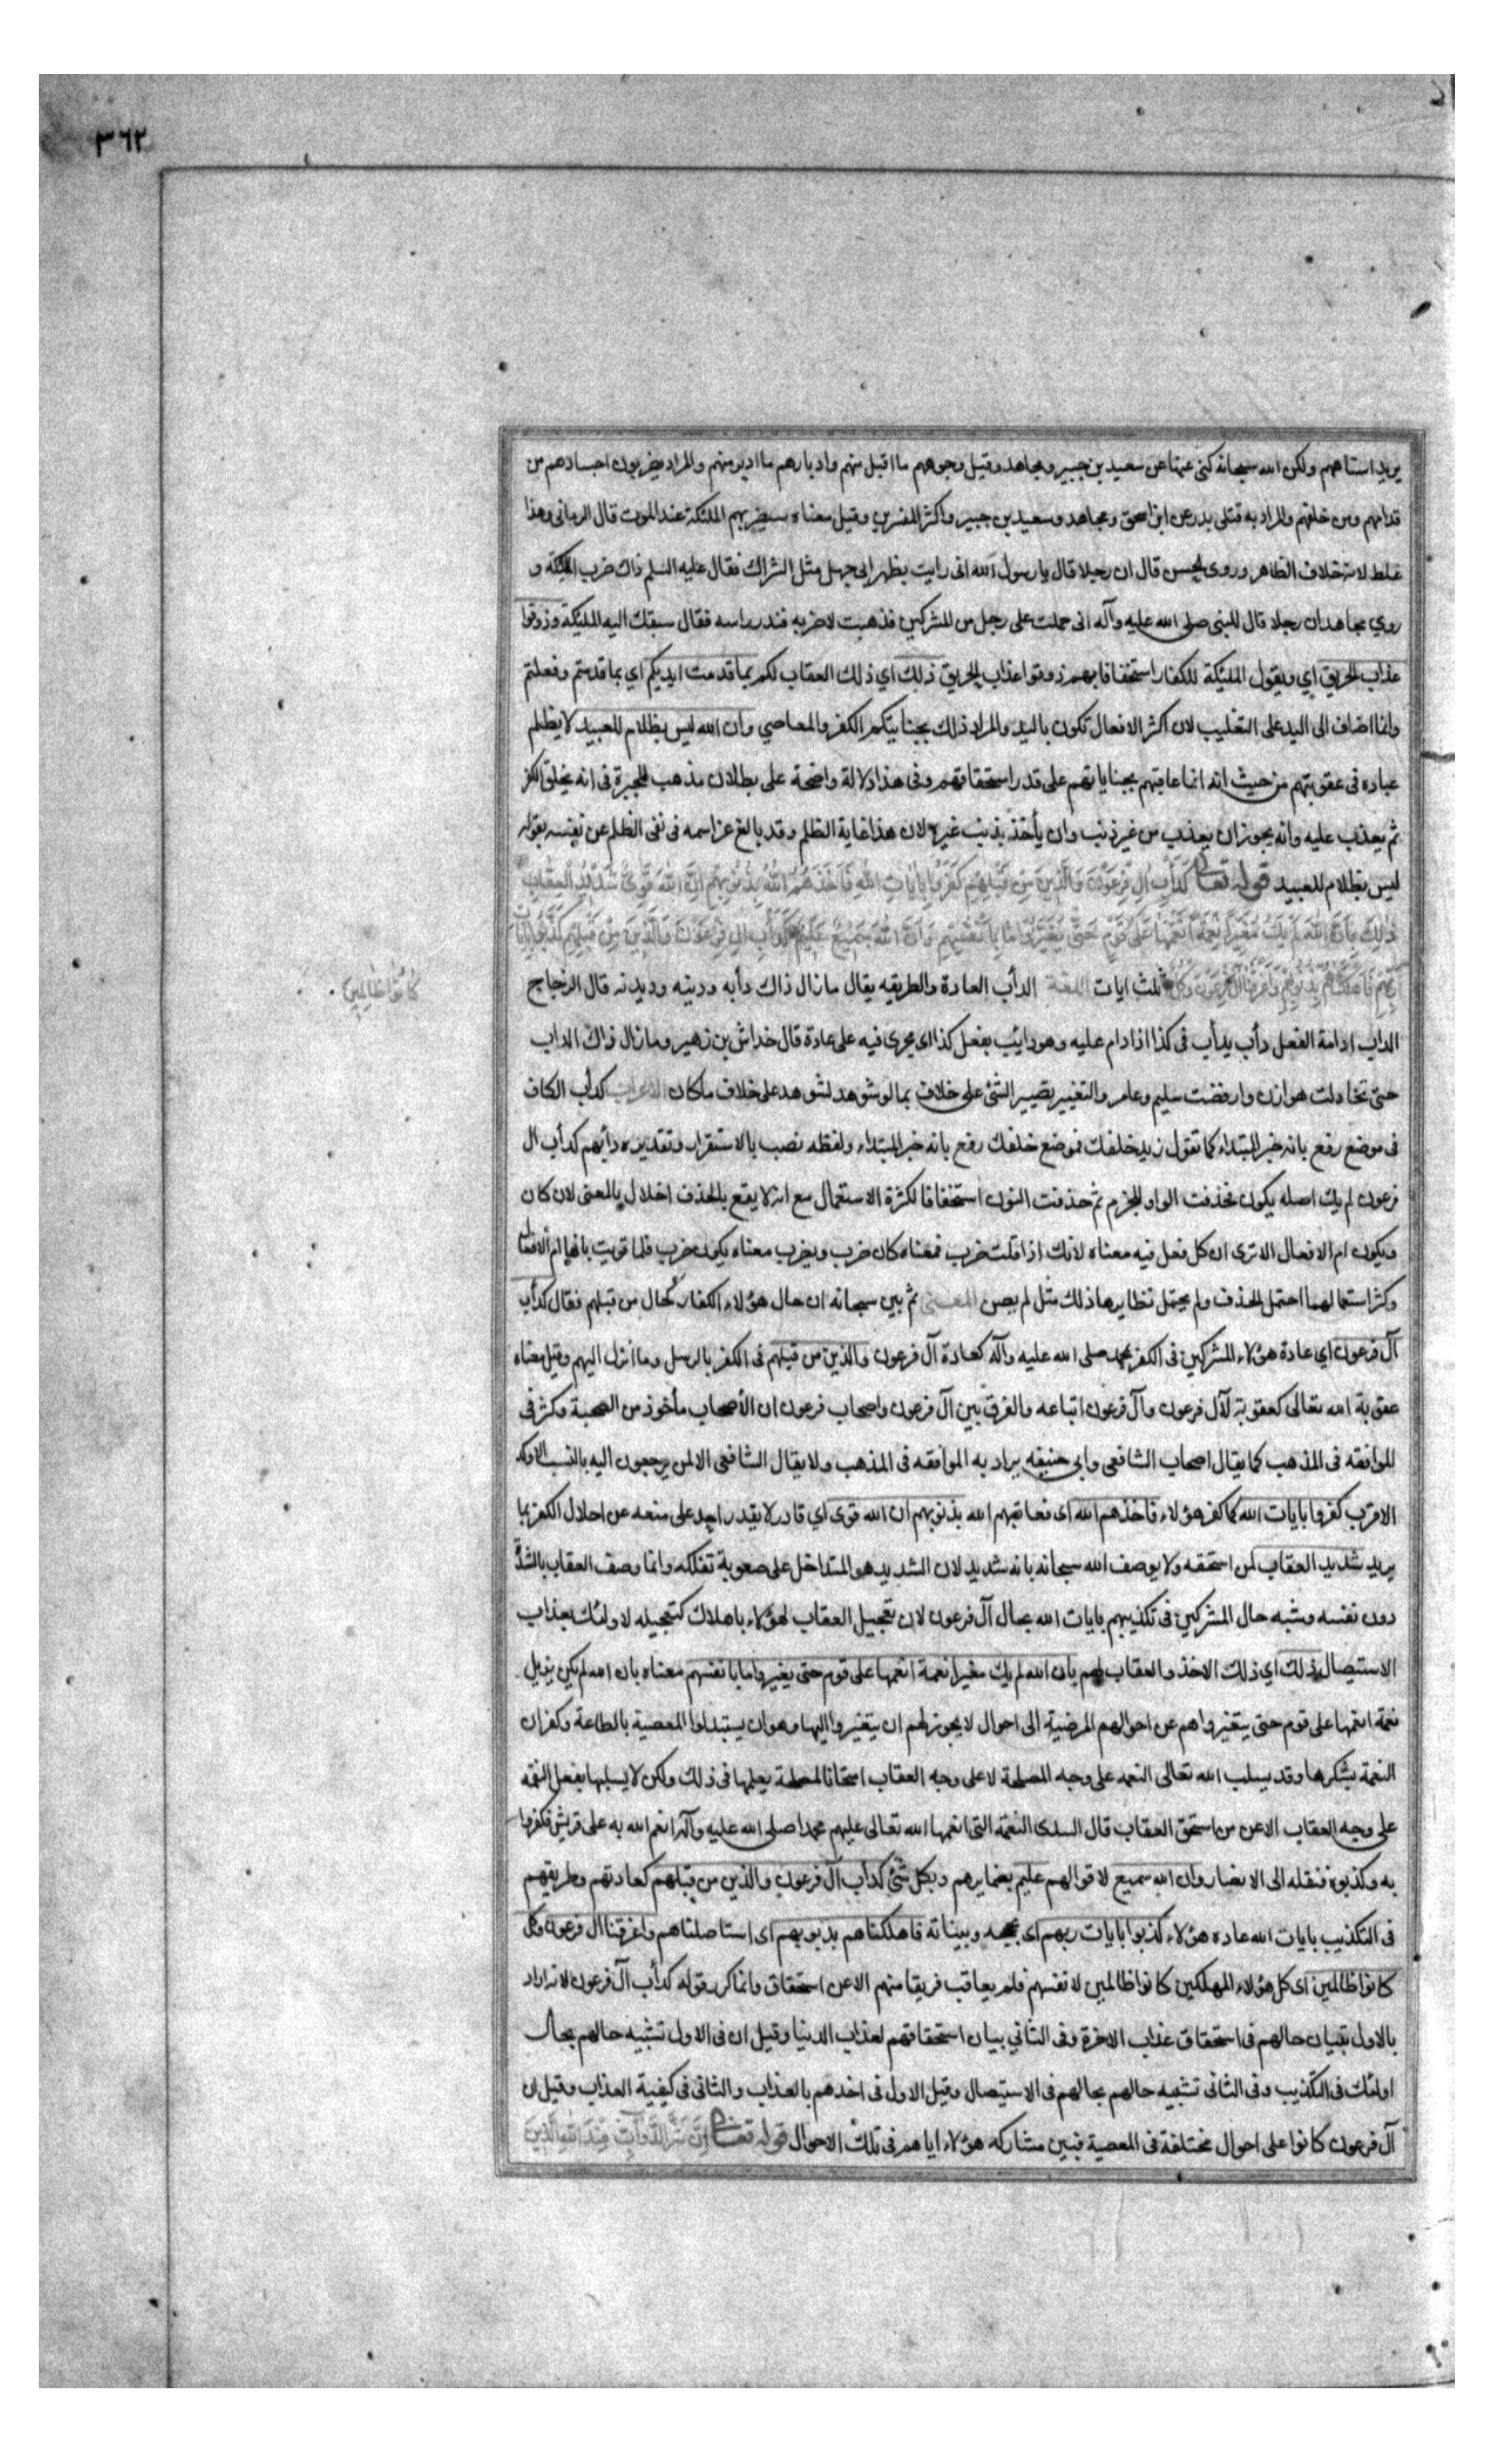 ٣٦٢
يريد استاههم ولكن الله سبحانه كنى عنها عن سعيد بن جبير ومجاهد وقيل وجوههم ما اقبل منهم وادبارهم ما ادبر منهم والمراد يضربون اجسادهم من
قدامهم ومن خلفهم والمراد به قتلى بدر عن ابن اسحق ومجاهد وسعيد بن جبير واكثر المفسرين وقيل معناه سيضربهم الملئكة عند الموت قال الرماني وهذا
غلط لانه خلاف الظاهر وروى الحسن قال ان رجلا قال يا رسول الله انى رايت بظهر ابى جهل مثل الشراك فقال عليه السلم ذاك ضرب الملئكة و
روي مجاهد ان رجلا قال للنبى صلى الله عليه وآله انى حملت على رجل من المشركين فذهبت لاضربه فندر راسه فقال سبقك اليه الملئكة وذوقوا
عذاب الحريق اي ويقول الملئكة للكفار استخفافا بهم ذوقوا عذاب الحريق ذلك اي ذلك العقاب لكم بما قدمت ايديكم اي بما قدمتم وفعلتم
وانما اضاف الى اليد على التغليب لان اكثر الافعال تكون باليد والمراد ذلك بجنايتكم الكفر والمعاصي وان الله ليس بظلام للعبيد لا يظلم
عباده فى عقوبتهم من حيث انه انما عاقبهم بجناياتهم على قدر استحقاقهم وفى هذا دلالة واضحة على بطلان مذهب المجبرة فى انه يخلق الكفر
ثم يعذب عليه وانه يجوز ان يعذب من غير ذنب وان يأخذ بذنب غيره لان هذا غاية الظلم وقد بالغ عز اسمه فى نفى الظلم عن نفسه بقوله
ليس بظلام للعبيد قوله تعالى كَدَأْبِ الِ فِرعَوْنَ وَالَّذِينَ مِن قَبْلِهِمْ كَفَرُوا بِايَاتِ اللهِ فَاَخَذَهُمُ اللهُ بِذُنُوبِهِمْ اِنَّ اللهَ قَوِيٌّ شَدِيدُ العِقَابِ
ذَلِكَ بِاَنَّ اللهَ لَمْ يَكُ مُغَيِّرًا نِعْمَةً اَنْعَمَهَا عَلَى قَوْمٍ حَتَّى يُغَيِّرُوا مَا بِاَنْفُسِهِمْ وَاَنَّ اللهَ سَمِيعٌ عَلِيمٌ كَدَأْبِ الِ فِرْعَوْنَ وَالَّذِينَ مِنْ قَبْلِهِمْ كَذَّبُوا بِايَاتِ
رَبِّهِمْ فَاَهْلَكْنَاهُمْ بِذُنُوبِهِمْ وَاَغْرَقْنَا الَ فِرْعَوْنَ وَكُلٌّ ثلث ايات اللغة الدأب العادة والطريقه يقال ما زال ذاك دأبه ودينه وديدنه قال الزجاج
كَانُوا ظَالِمِينَ
الداب ادامة الفعل دأب يدأب فى كذا اذا دام عليه وهو دايب بفعل كذا اى يجرى فيه على عادة قال خداش بن زهير وما زال ذاك الداب
حتى تخاذلت هوازن وارفضت سليم وعامر والتغيير تصيير الشئ على خلاف بما لو شوهد لشوهد على خلاف ما كان الاعراب كدأب الكاف
فى موضع رفع بانه خبر المبتداء كما تقول زيد خلفك فموضع خلفك رفع بانه خبر المبتداء ولفظه نصب بالاستقرار وتقديره دائبهم كدأب ال
فرعون لم يك اصله يكون فحذفت الواو للجزم ثم حذفت النون استخفافا لكثرة الاستعمال مع انه لا يقع بالحذف اخلال بالمعنى لان كان
ويكون ام الافعال الا ترى ان كل فعل فيه معناه لانك اذا قلت ضرب فمعناه كان ضرب ويضرب معناه يكون ضرب فلما قويت بانها ام الافعال
وكثر استعمالهما احتمل الحذف ولم يحتمل نظايرها ذلك مثل لم يصن المعنى ثم بين سبحانه ان حال هؤلاء الكفار كحال من قبلهم فقال كدأب
آل فرعون اي عادة هؤلاء المشركين فى الكفر بمحمد صلى الله عليه وآله كعادة آل فرعون والذين من قبلهم فى الكفر بالرسل وما انزل اليهم وقيل معناه
عقوبة الله تعالى كعقوبة لآل فرعون وآل فرعون اتباعه والفرق بين آل فرعون واصحاب فرعون ان الأصحاب مأخوذ من الصحبة وكثر فى
الموافقه فى المذهب كما يقال اصحاب الشافعى وابى حنيفه يراد به الموافقه فى المذهب ولا يقال الشافعى الا لمن يرجعون اليه بالنسب الاوكد
الاقرب كفروا بايات الله كما كفر هؤلاء فاخذهم الله اى فعاقبهم الله بذنوبهم ان الله قوى اي قادر لا يقدر احد على منعه عن احلال الكفر بما
يريد شديد العقاب لمن استحقه ولا يوصف الله سبحانه بانه شديد لان الشديد هو المتداخل على صعوبة تفككه وانما وصف العقاب بالشدة
دون نفسه وشبه حال المشركين فى تكذيبهم بايات الله بحال آل فرعون لان تعجيل العقاب لهؤلاء باهلاك كتعجيله لاولئك بعذاب
الاستيصال ذلك اي ذلك الاخذ والعقاب لهم بان الله لم يك مغيرا نعمة انعمها على قوم حتى يغيروا ما بانفسهم معناه بان الله لم يكن يزيل
نعمة انعمها على قوم حتى يتغيروا هم عن احوالهم المرضية الى احوال لا يجوز لهم ان يتغيروا اليها وهو ان يستبدلوا المعصية بالطاعة وكفران
النعمة بشكرها وقد يسلب الله تعالى النعمه على وجه المصلحة لا على وجه العقاب امتحانا لمصلحة يعلمها فى ذلك ولكن لا يسلبها بفعل النقمه
على وجه العقاب الا عن من استحق العقاب قال السدى النعمة التى انعمها الله تعالى عليهم محمدا صلى الله عليه وآله انعم الله به على قريش فكفروا
به وكذبوه فنقله الى الانصار وان الله سميع لاقوالهم عليم بضمايرهم وبكل شئ كدأب آل فرعون والذين من قبلهم كعادتهم وطريقهم
فى التكذيب بايات الله عاده هؤلاء كذبوا بايات ربهم اى بحججه وبيناته فاهلكناهم بذنوبهم اى استاصلناهم واغرقنا ال فرعون وكل
كانوا ظالمين اى كل هؤلاء المهلكين كانوا ظالمين لانفسهم فلم يعاقب فريقا منهم الا عن استحقاق وانما كرر قوله كدأب آل فرعون لانه اراد
بالاول تبيان حالهم فى استحقاق عذاب الاخرة وفى الثاني بيان استحقاقهم لعذاب الدنيا وقيل ان فى الاول تشبيه حالهم بحال
اولئك فى التكذيب وفى الثانى تشبيه حالهم بحالهم فى الاستيصال وقيل الاول فى اخذهم بالعذاب والثانى فى كيفية العذاب وقيل ان
آل فرعون كانوا على احوال مختلفة فى المعصية فبين مشاركه هؤلاء اياهم فى تلك الاحوال قوله تعالى اِنَّ شَرَّ الدَّوَآبِّ عِنْدَ اللهِ الَّذِينَ